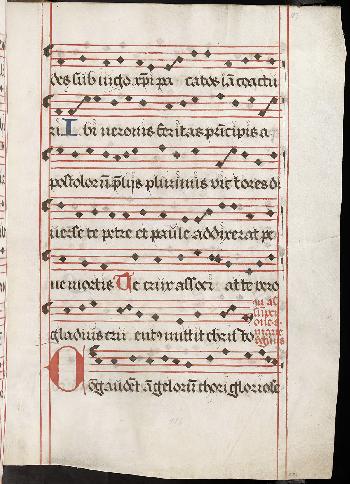 des sub iugo xp̄i pa catos iā coactu
ri. Ubi neronis feritas prīcipis a
postoloꝝ p̄lijs plurimis victores di
uerse te petre et paule addixerat pe
ne mortis Te crux associ at te vero
gladius cru entꝰ mittit christo
Odgaudēt āgeloꝝ chori gloriose